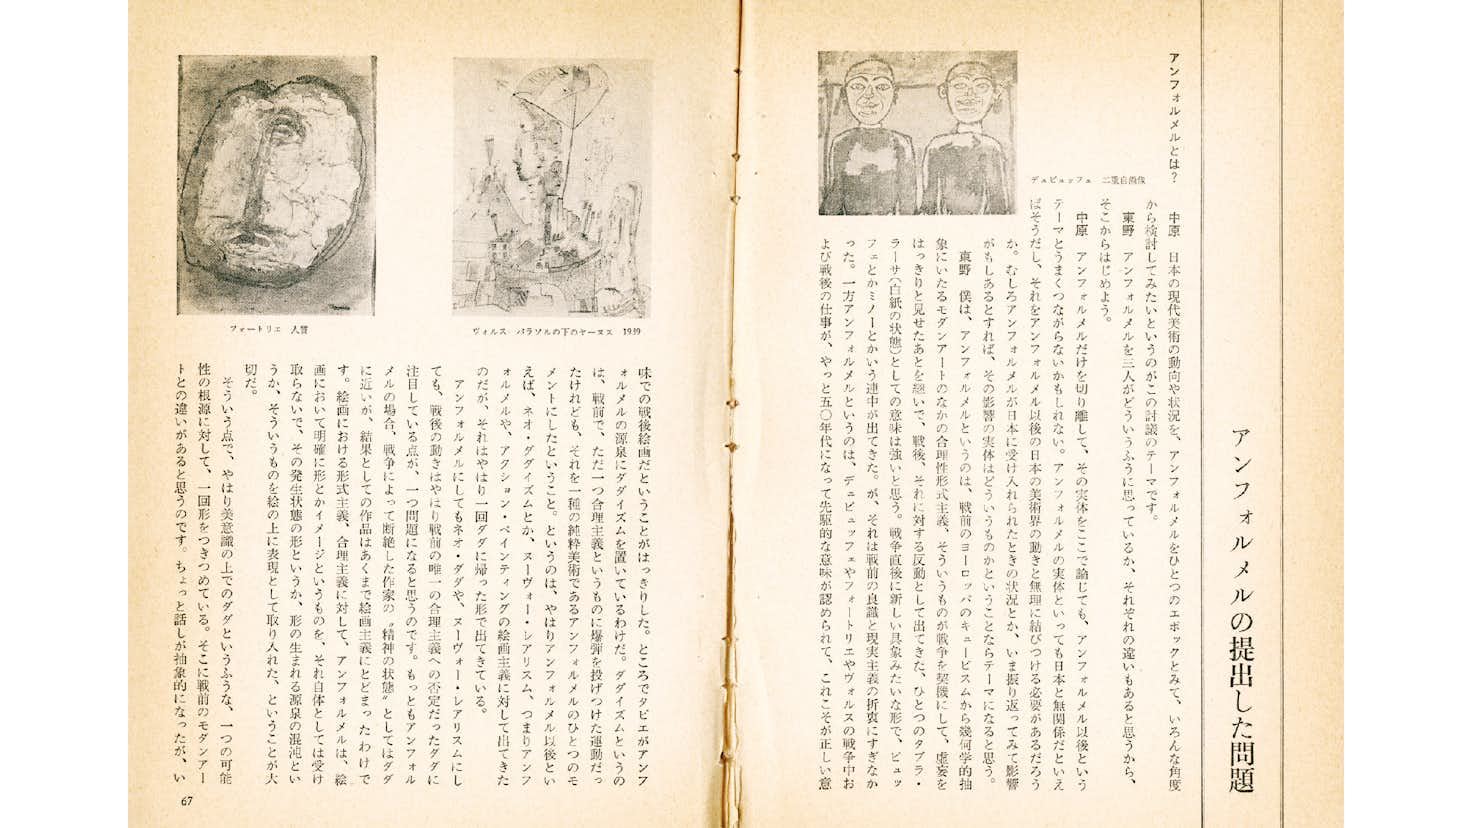 アンフォルメルの提出した問題
アンフォルメルとは?
デュビュッフェ 二重自画像
中原 日本の現代美術の動向や状況を、アンフォルメルをひとつのエポックとみて、いろんな角度
から検討してみたいというのがこの討議のテーマです。
東野 アンフォルメルを三人がどういうふうに思っているか、それぞれの違いもあると思うから、
そこからはじめよう。
中原 アンフォルメルだけを切り離して、その実体をここで論じても、アンフォルメル以後という
テーマとうまくつながらないかもしれない。アンフォルメルの実体といっても日本と無関係だといえ
ばそうだし、それをアンフォルメル以後の日本の美術界の動きと無理に結びつける必要があるだろう
か。むしろアンフォルメルが日本に受け入れられたときの状況とか、いま振り返ってみて影響
がもしあるとすれば、その影響の実体はどういうものかということならテーマになると思う。
東野 僕は、アンフォルメルというのは、戦前のヨーロッパのキュービスムから幾何学的抽
象にいたるモダンアートのなかの合理性形式主義、そういうものが戦争を契機にして、虚妄を
はっきりと見せたあとを継いで、戦後、それに対する反動として出てきた、ひとつのタブラ・
ラーサ(白紙の状態)としての意味は強いと思う。戦争直後に新しい具象みたいな形で、ビュッ
フェとかミノーとかいう連中が出てきた。が、それは戦前の良識と現実主義の折衷にすぎなか
った。一方アンフォルメルというのは、デュビュッフェやフォートリエやヴォルスの戦争中お
よび戦後の仕事が、やっと五〇年代になって先駆的な意味が認められて、これこそが正しい意
ヴォルス パラソルの下のヤーヌス 1939
フォートリエ 人質
味での戦後絵画だということがはっきりした。ところでタピエがアンフ
ォルメルの源泉にダダイズムを置いているわけだ。ダダイズムというの
は、戦前で、ただ一つ合理主義というものに爆弾を投げつけた運動だっ
たけれども、それを一種の純粋美術であるアンフォルメルのひとつのモ
メントにしたということ。というのは、やはりアンフォルメル以後とい
えば、ネオ・ダダイズムとか、ヌーヴォー・レアリスム、つまりアンフ
ォルメルや、アクション・ペインティングの絵画主義に対して出てきた
のだが、それはやはり一回ダダに帰った形で出てきている。
アンフォルメルにしてもネオ・ダダや、ヌーヴォー・レアリスムにし
ても、戦後の動きはやはり戦前の唯一の合理主義への否定だったダダに
注目している点が、一つ問題になると思うのです。もっともアンフォル
メルの場合、戦争によって断絶した作家の〝精神の状態〟としてはダダ
に近いが、結果としての作品はあくまで絵画主義にとどまったわけで
す。絵画における形式主義、合理主義に対して、アンフォルメルは、絵
画において明確に形とかイメージというものを、それ自体としては受け
取らないで、その発生状態の形というか、形の生まれる源泉の混沌とい
うか、そういうものを絵の上に表現として取り入れた、ということが大
切だ。
そういう点で、やはり美意識の上でのダダというふうな、一つの可能
性の根源に対して、一回形をつきつめている。そこに戦前のモダンアー
トとの違いがあると思うのです。ちょっと話しが抽象的になったが、い
67